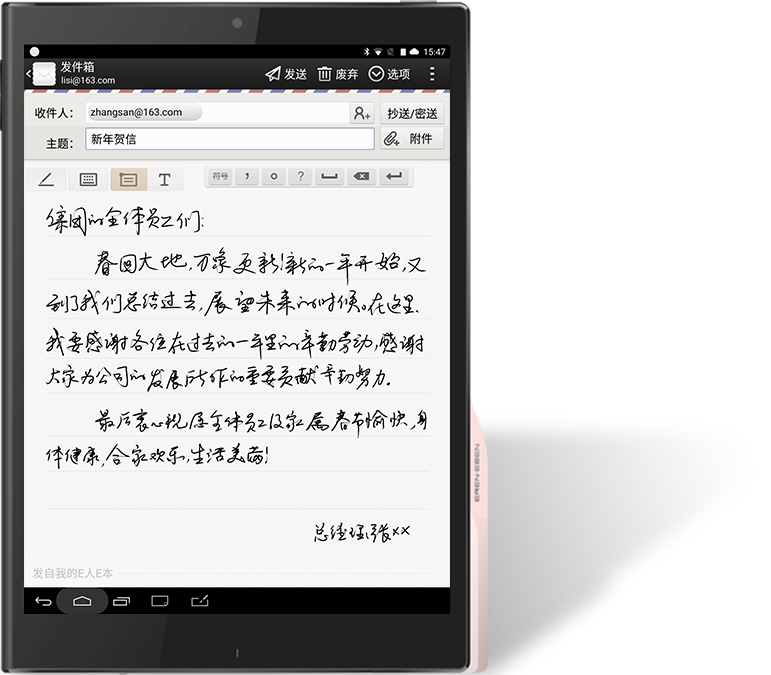 15:47
发件箱
lisi@163.com
发送 废弃 选项
收件人: zhangsan@163.com 抄送/密送
主题: 新年贺信 附件
T 符号 , 。 ?
集团的全体员工们:
春回大地,万象更新!新的一年开始,又
到了我们总结过去,展望未来的时候。在这里,
我要感谢各位在过去的一年里的辛勤劳动,感谢
大家为公司的发展所作的重要贡献辛勤努力.
最后衷心祝愿全体员工及家属春节愉快,身
体健康,合家欢乐,生活美满!
总经理:张××
发自我的E人E本
EREN·EBEN